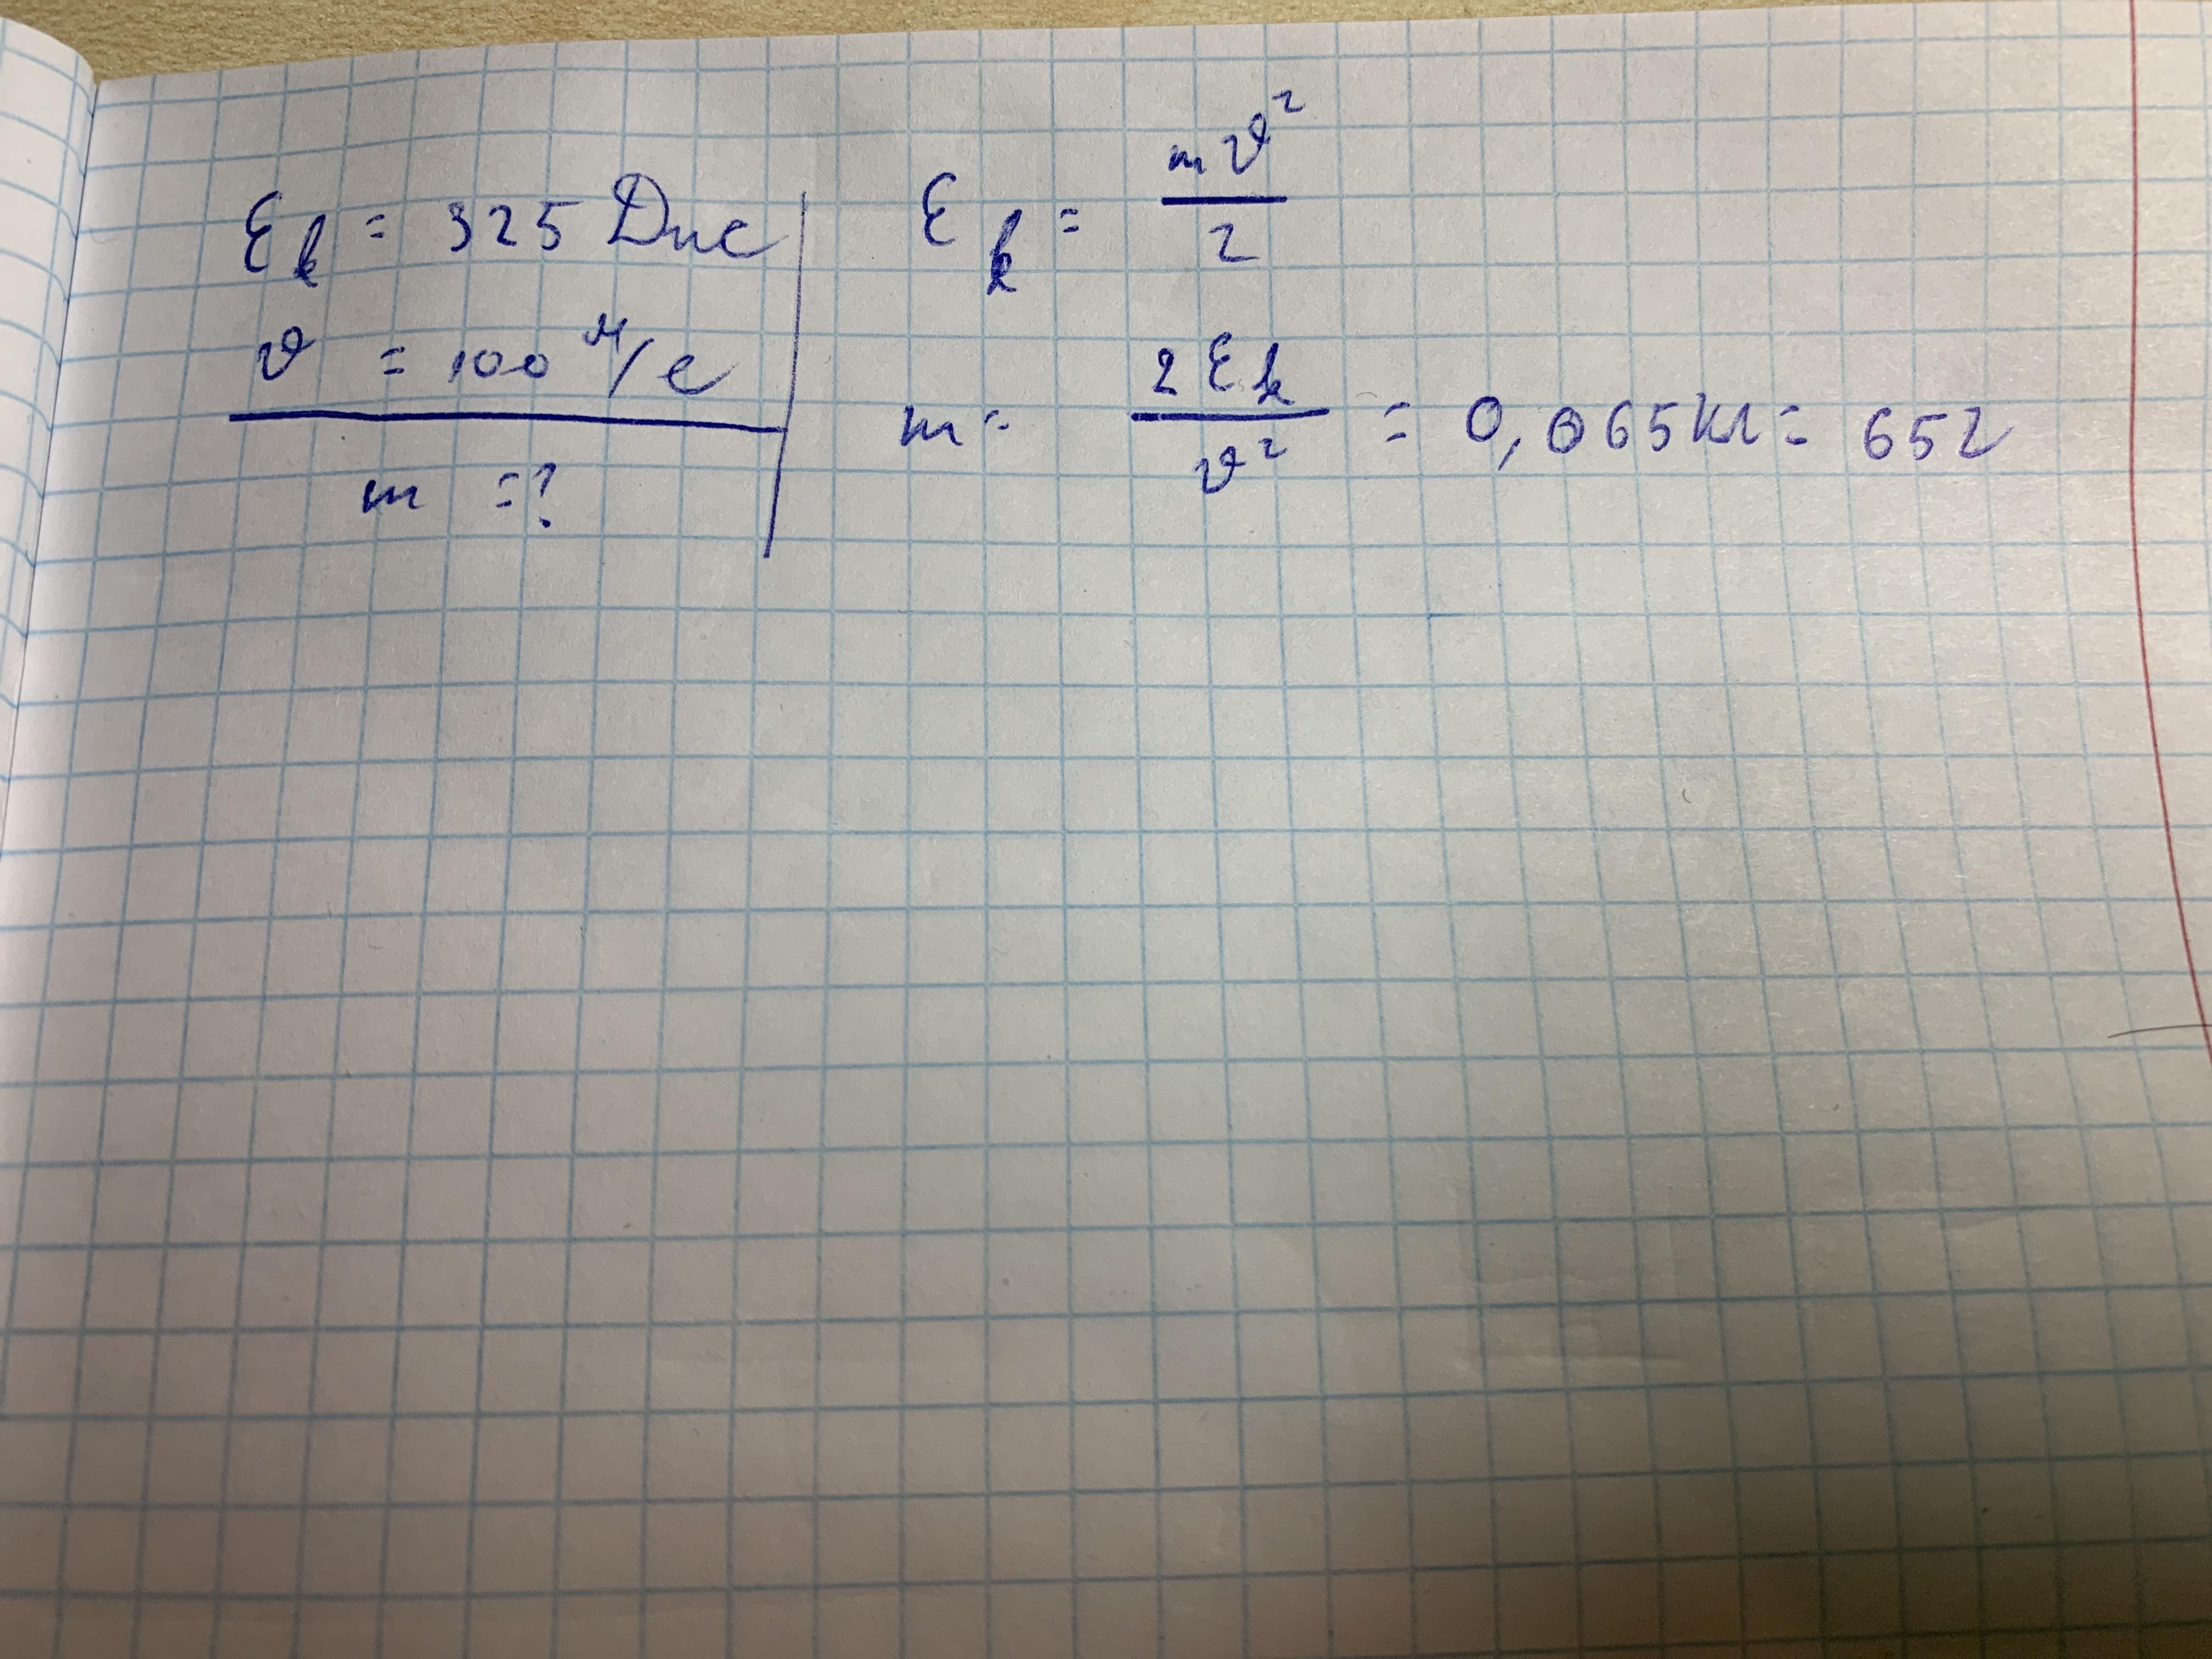 Eₖ = 325 Дж
υ = 100 м/с
m = ?
Eₖ = mυ²/2
m = 2Eₖ/υ² = 0,065 кг = 65 г